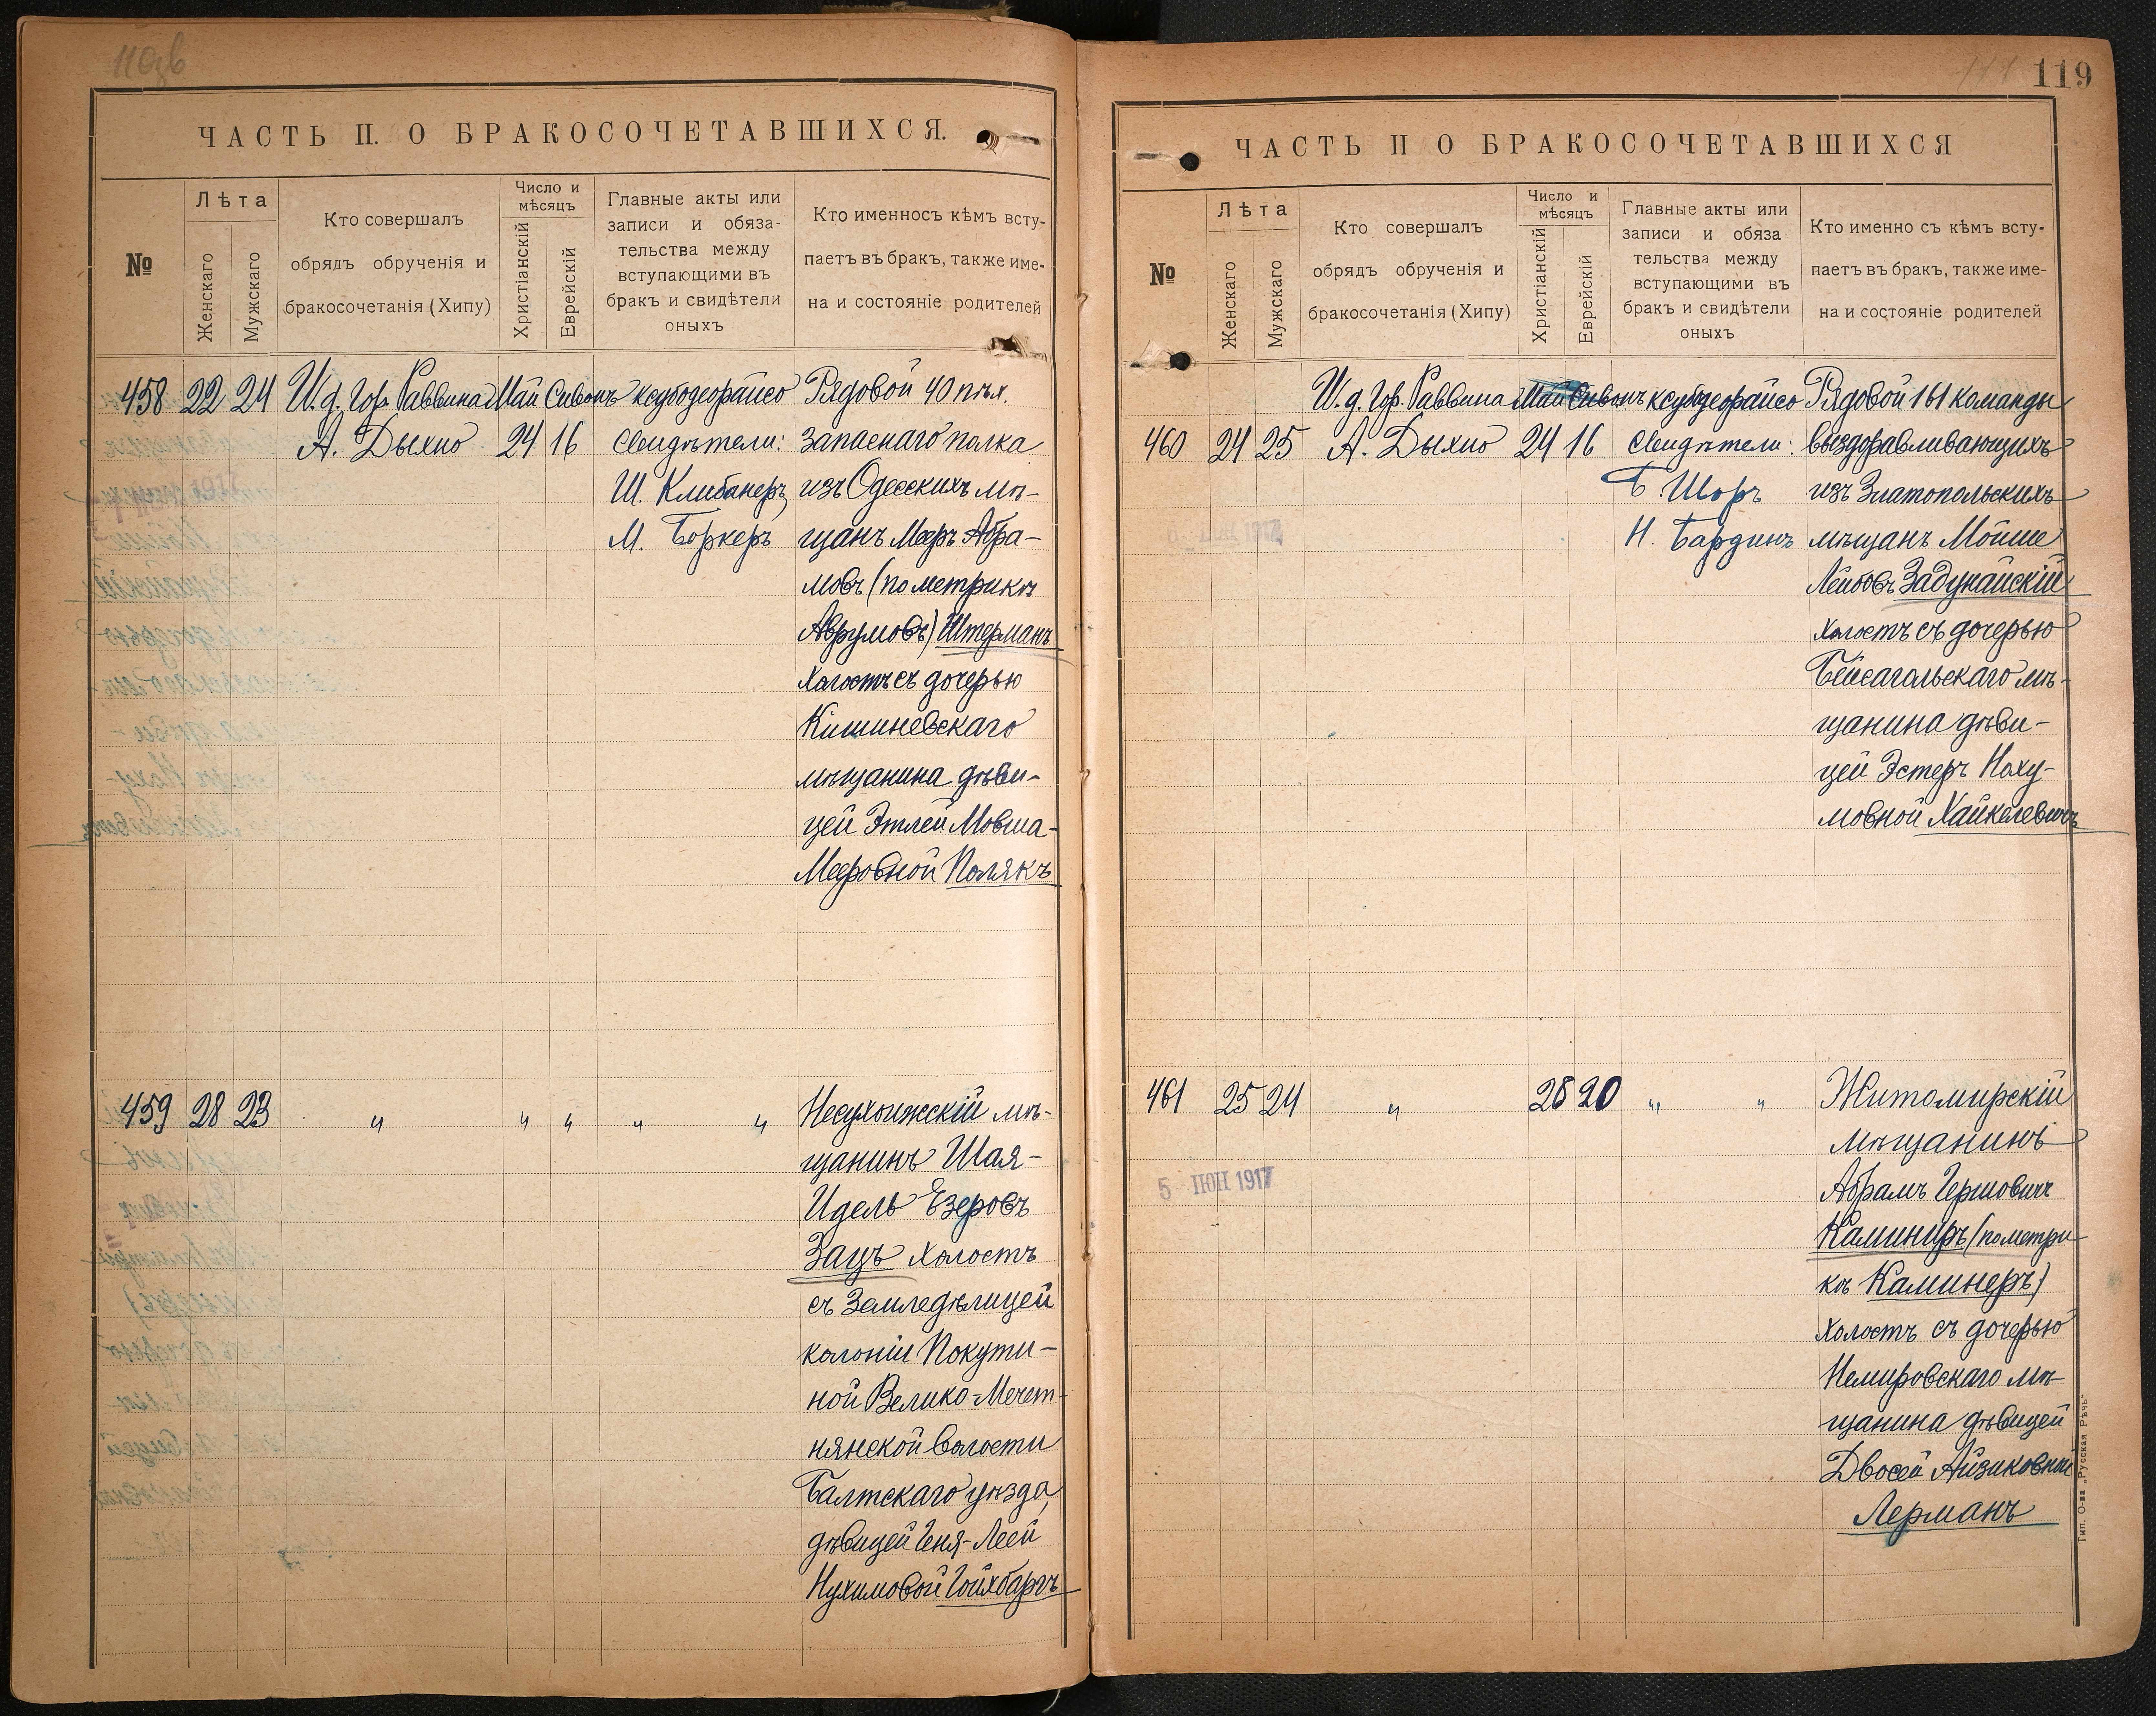 ЧАСТЬ II. О БРАКОСОЧЕТАВШИХСЯ.
№
Лѣта
Женскаго
Мужскаго
Кто совершалъ
обрядъ обрученія и
бракосочетанія (Хипу)
Число и
мѣсяцъ
Христіанскій
Еврейскій
Главные акты или
записи и обяза-
тельства между
вступающими въ
бракъ и свидѣтели
оныхъ
Кто именносъ кѣмъ всту-
паетъ въ бракъ, также име-
на и состояніе родителей
458 22 24 И.д. Гор. Раввина Май Сивонъ ксубодеорайсо Рядовой 40 пѣх.
А. Дыхно 24 16 Свидѣтели: запаснаго полка
Ш. Клибанеръ, изъ Одесскихъ мѣ-
М. Боркеръ щанъ Мееръ Абра-
мовъ (по метрикѣ
Аврумовъ) Штерманъ
холостъ съ дочерью
Кишиневскаго
мѣщанина дѣви-
цей Этлей Мовша-
Мееровной Полякъ
459 28 23 " " " " " Несухоижскій мѣ-
щанинъ Шая-
Идель Езеровъ
Зацъ холостъ
съ земледѣлицей
колоніи Покути-
ной Велико-Мечет-
нянской волости
Балтскаго уѣзда,
дѣвицей Геня-Леей
Нухимовой Гойхбаргъ
119
ЧАСТЬ II О БРАКОСОЧЕТАВШИХСЯ
№
Лѣта
Женскаго
Мужскаго
Кто совершалъ
обрядъ обрученія и
бракосочетанія (Хипу)
Число и
мѣсяцъ
Христіанскій
Еврейскій
Главные акты или
записи и обяза
тельства между
вступающими въ
бракъ и свидѣтели
оныхъ
Кто именно съ кѣмъ всту-
паетъ въ бракъ, также име-
на и состояніе родителей
И.д. Гор. Раввина Май Сивонъ ксубодеорайсо Рядовой 161 команды
460 24 25 А. Дыхно 24 16 Свидѣтели: выздоравливающихъ
Б. Шоръ изъ Златопольскихъ
Н. Бардинъ мѣщанъ Мойше
Лейбовъ Задунайскій
холостъ съ дочерью
Бейсагольскаго мѣ-
щанина дѣви-
цей Эстеръ Наху-
мовной Хайкелевичъ
461 25 24 " 28 20 " " Житомирскій
мѣщанинъ
5 ІЮН 1917
Абрамъ Гершовичъ
Каминиръ (по метри-
кѣ Каминеръ)
холостъ съ дочерью
Немировскаго мѣ-
щанина дѣвицей
Двосей Айзиковной
Лерманъ
Тип. О-ва „Русская Рѣчь"